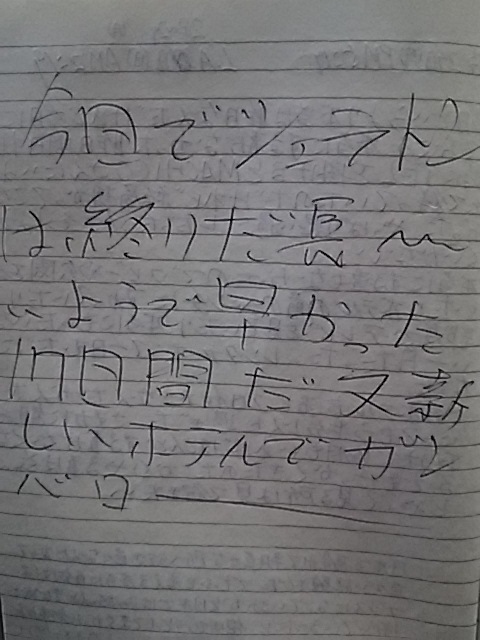 今日でシェラトン
は、終りだ長〜
いようで早かった
17日間だ又新
しいホテルでガン
バロー